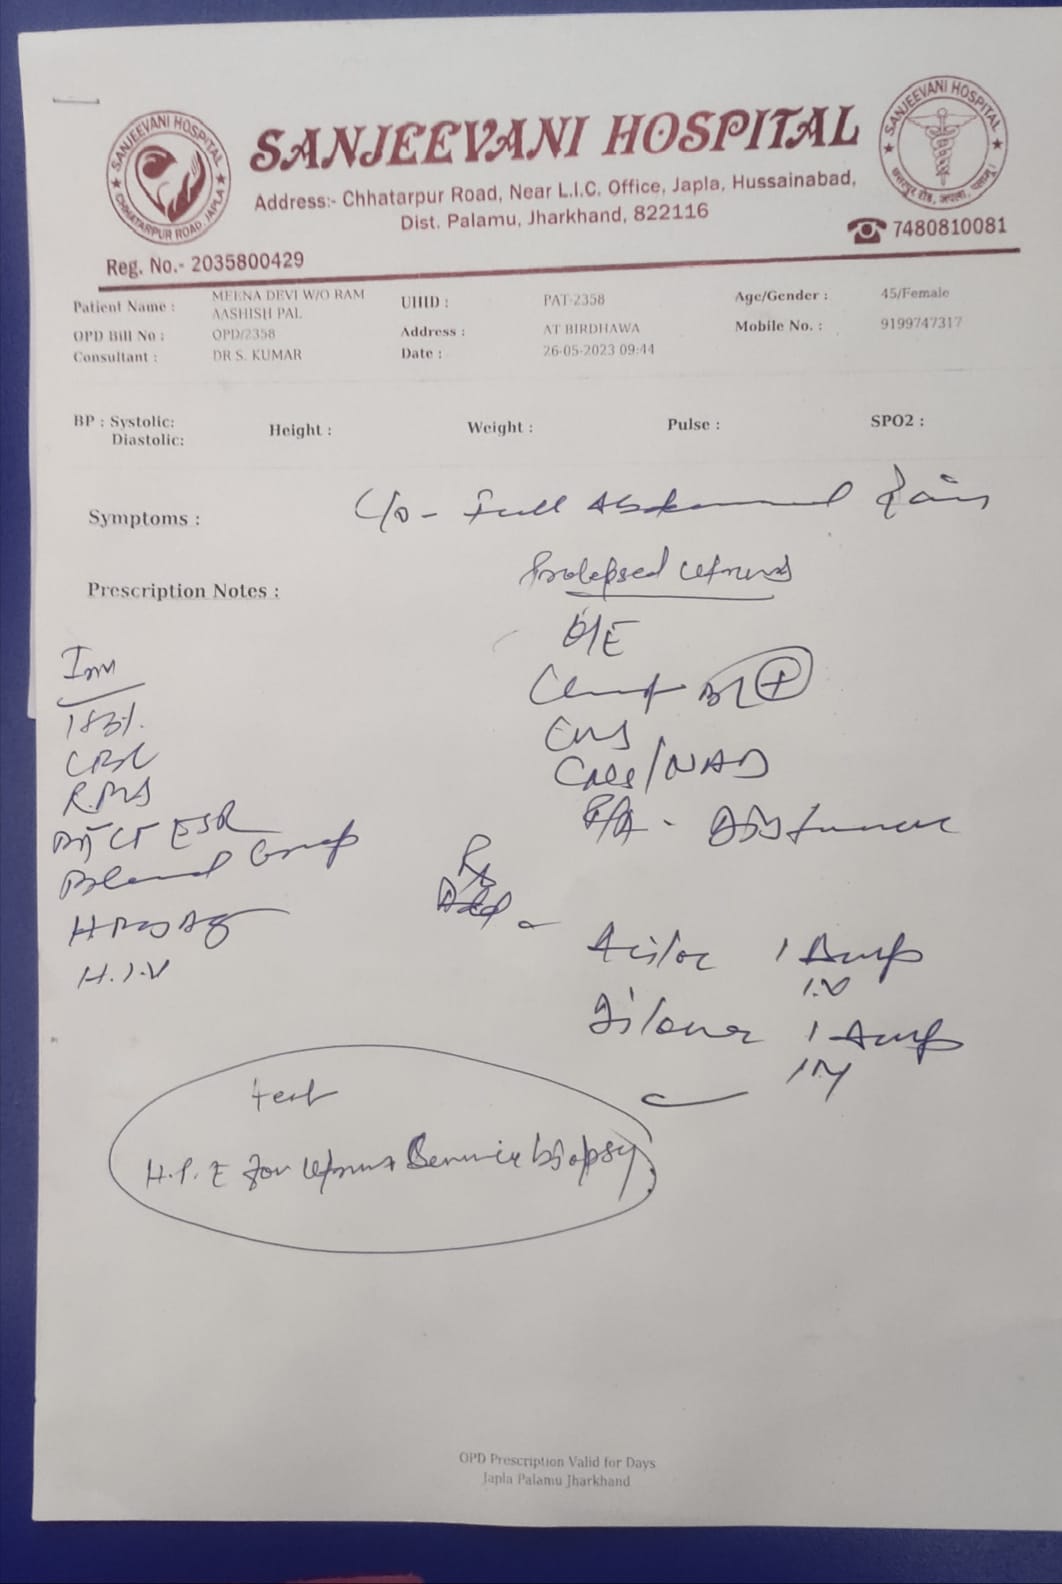 SANJEEVANI HOSPITAL
SANJEEVANI HOSPITAL
CHHATARPUR ROAD, JAPLA
SANJEEVANI HOSPITAL
Address:- Chhatarpur Road, Near L.I.C. Office, Japla, Hussainabad,
Dist. Palamu, Jharkhand, 822116
7480810081
Reg. No.- 2035800429
Patient Name : MEENA DEVI W/O RAM AASHISH PAL UHID : PAT-2358 Age/Gender : 45/Female
OPD Bill No : OPD/2358 Address : AT BIRDHAWA Mobile No. : 9199747317
Consultant : DR S. KUMAR Date : 26-05-2023 09:44
BP : Systolic: Height : Weight : Pulse : SPO2 :
Diastolic:
Symptoms : C/o - Full Abdominal Pain
Prescription Notes : Prolapsed uterus
O/E
CNS
CVS/NAD
P/A -
Inv
CBC
RBS
BT CT ESR
Blood Group
HBSAg
H.I.V
Rx
Aciloc 1 Amp
I.V
1 Amp
IM
test
H.P.E for uterus biopsy
OPD Prescription Valid for Days
Japla Palamu Jharkhand